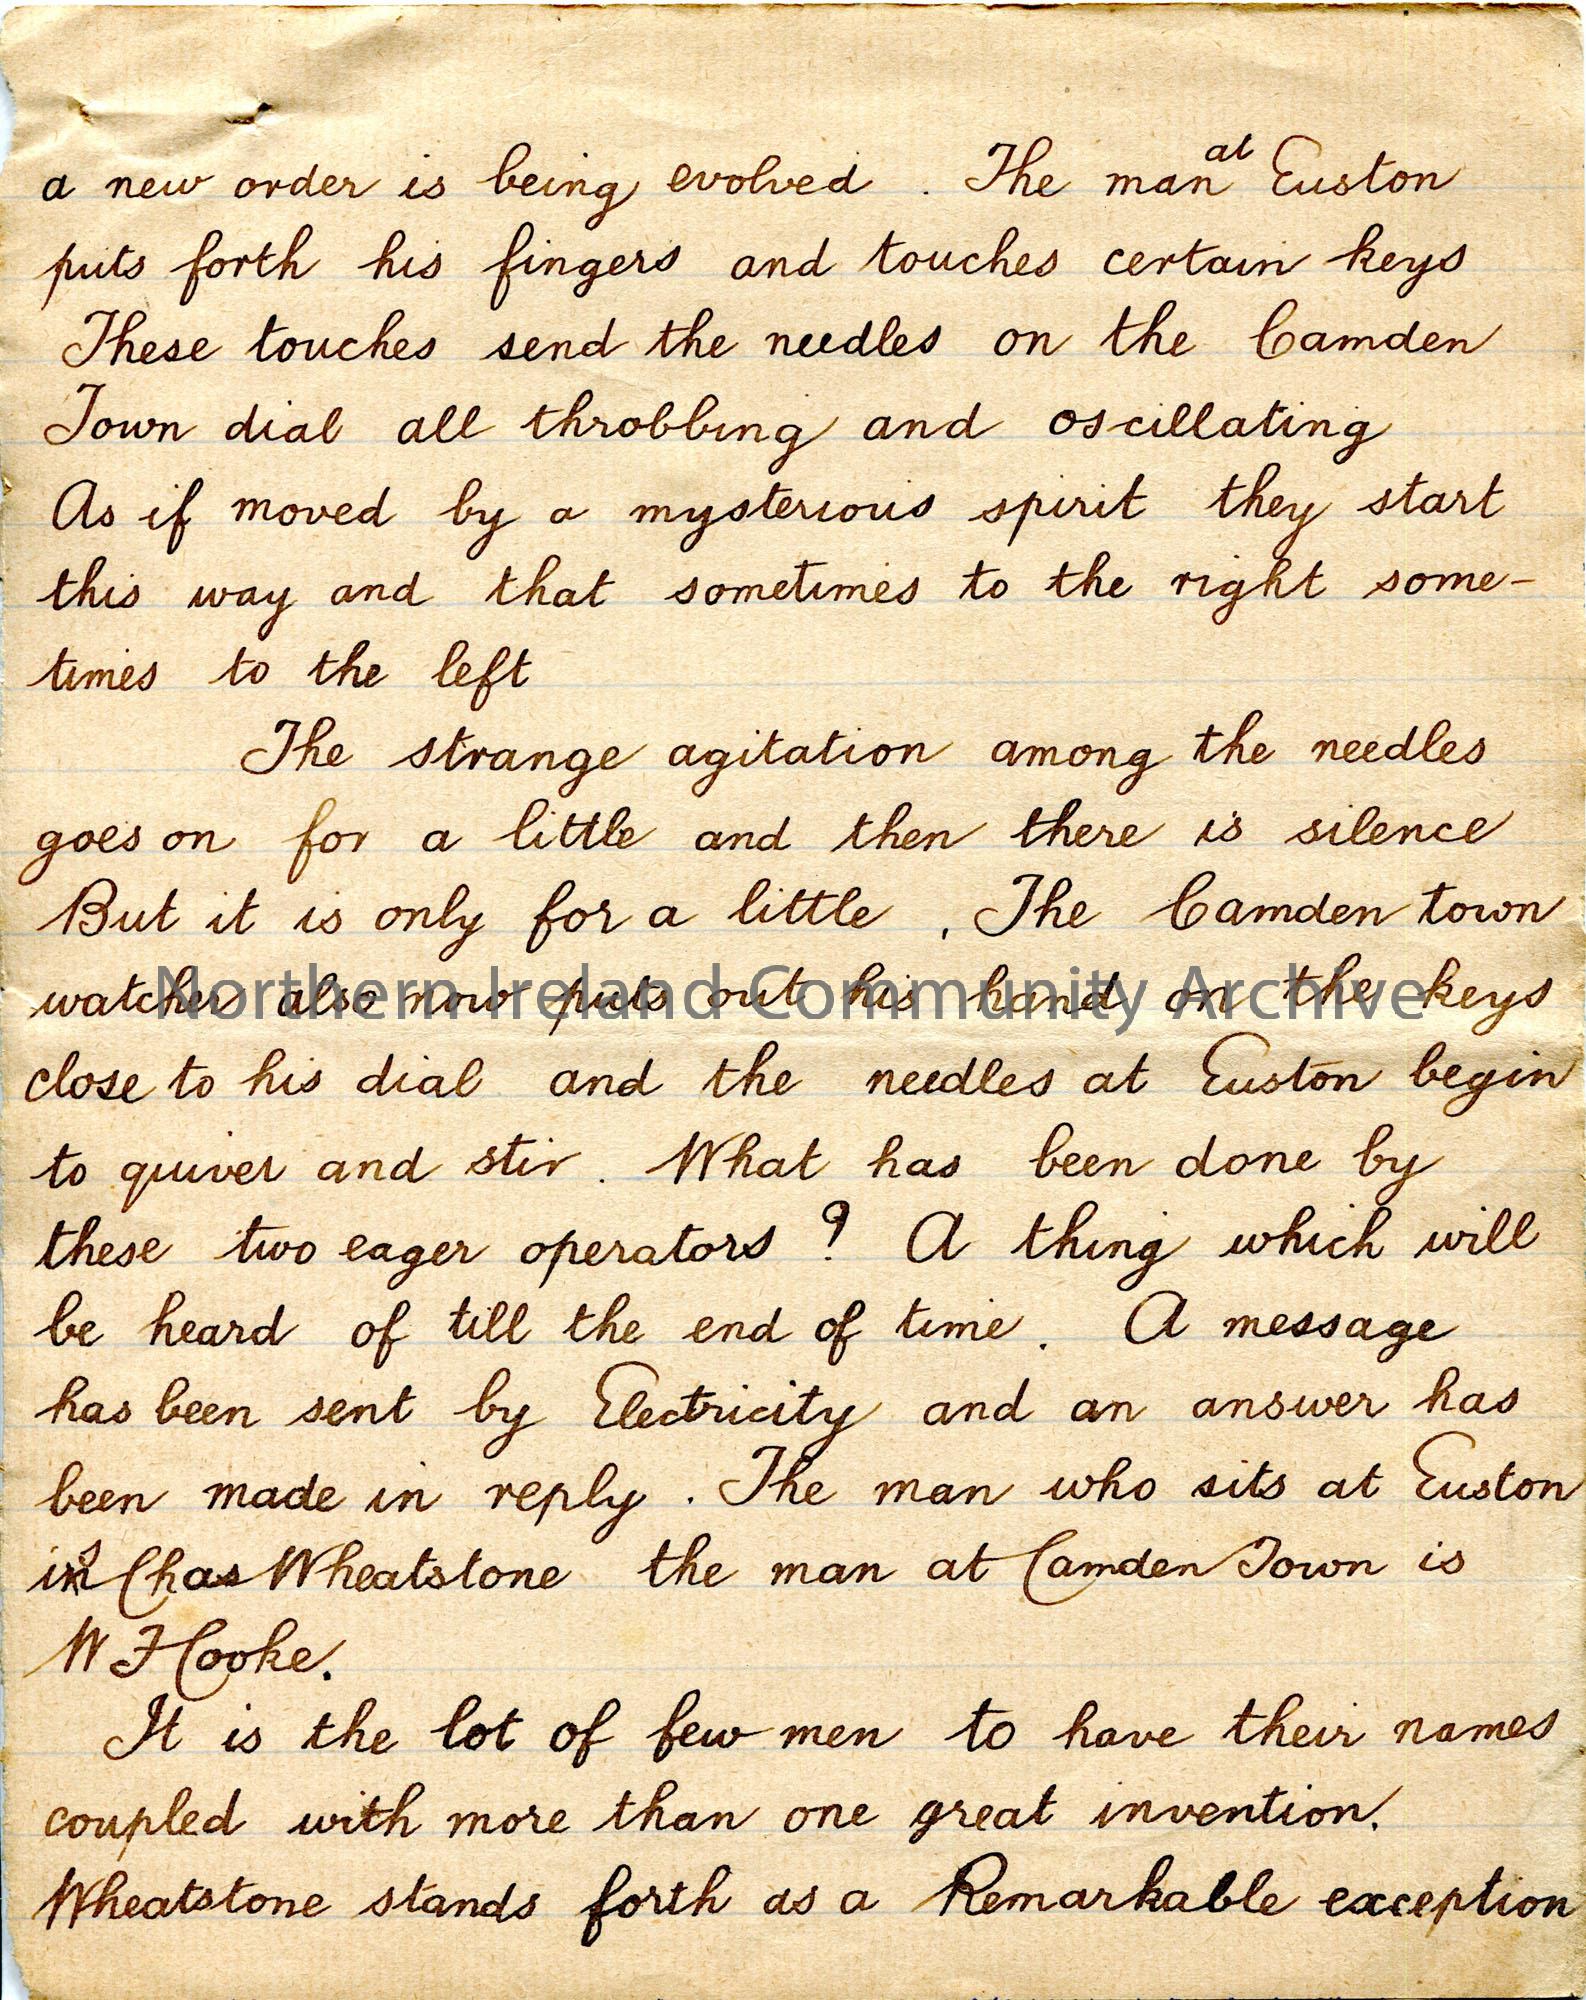 a new order is being evolved. The man at Euston
puts forth his fingers and touches certain keys
These touches send the needles on the Camden
Town dial all throbbing and oscillating
As if moved by a mysterious spirit they start
this way and that sometimes to the right some-
times to the left
The strange agitation among the needles
goes on for a little and then there is silence
But it is only for a little. The Camden town
watcher also now puts out his hand on the keys
Northern Ireland Community Archive
close to his dial and the needles at Euston begin
to quiver and stir. What has been done by
these two eager operators? A thing which will
be heard of till the end of time. A message
has been sent by Electricity and an answer has
been made in reply. The man who sits at Euston
is Chas Wheatstone the man at Camden Town is
W F Cooke.
It is the lot of few men to have their names
coupled with more than one great invention.
Wheatstone stands forth as a Remarkable exception